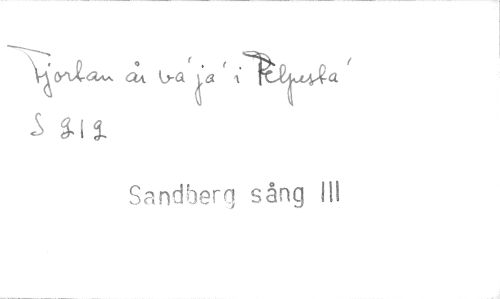 Fjortan år va' ja' i Pelpesta'
S 212
Sandberg sång III